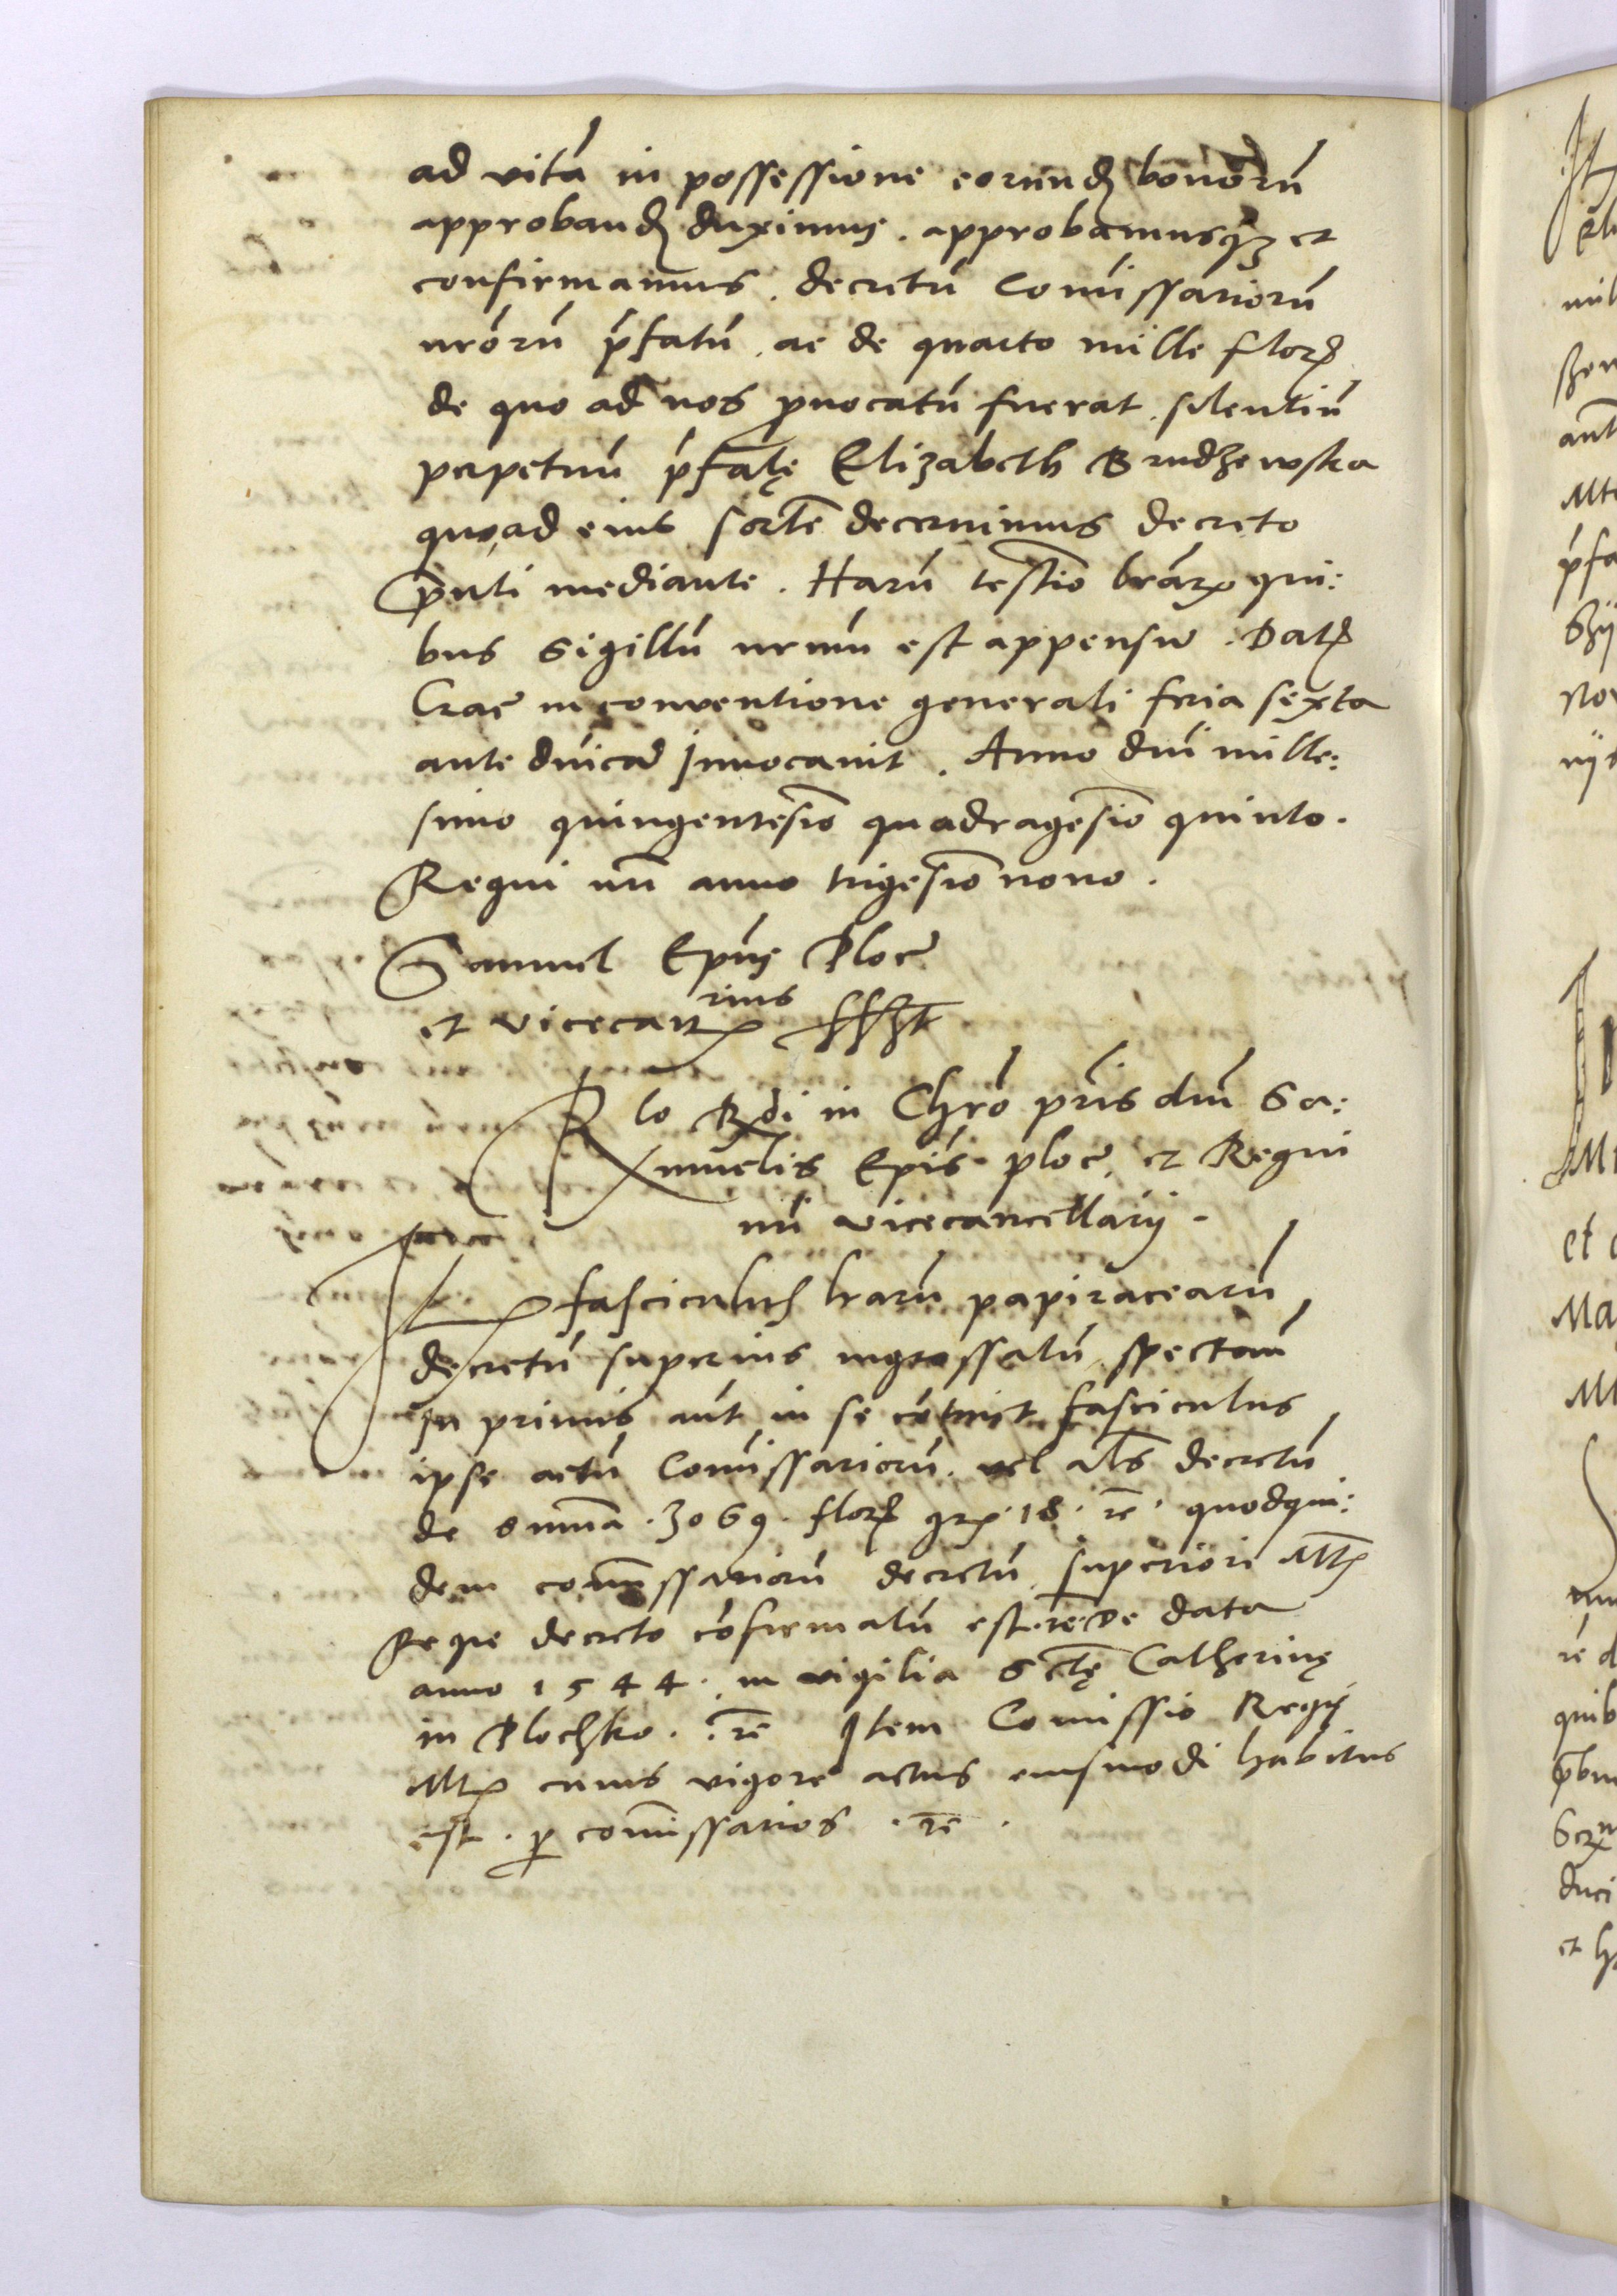 ad vitā in possessione eorund bonorū
approband duximus . approbamusqȝ et
confirmamus . decretū Comissariorū
nrōrū pfatū . ac de quarto mille flor
de quo ad nos puocatū fuerat . silentiū
perpetuū pfatę Elizabeth Brudzewska
quoad eius sortē decernimus decreto
pnti mediante . Harū testio lrar qui:
bus Sigillū nrum est appensū . Dat
Crac in conventione generali feria sexta
ante dnicā Invocavit . Anno dni mille:
simo quingentesio quadragesio quinto .
Regni nri anno trigesio nono .
Samuel Epus Ploc
et vicecanrius sszt
Rlo Rdi in Chro pris dni Sa:
muelis Epis ploc et Regni
nri vicecancellarij .
Ad fasciculus lrarū papiracearū
decretū superius ingrossatū spectan
In primis aut in se cōtinet fasciculus
ipse actū Comissariorū . vel als decretū
de summa . 3069 . flor gr . 18 . rc . quodqui:
dem comissariorū decretū superiori Mtis
Regie decreto cōfirmatū est . rc de data
anno 1544 . in vigilia Sctę Catherinę
in Plochko . rc Item Comissio Regij
Mtis cuius vigore actus eiusmodi habitus
est . p comissarios . rc .